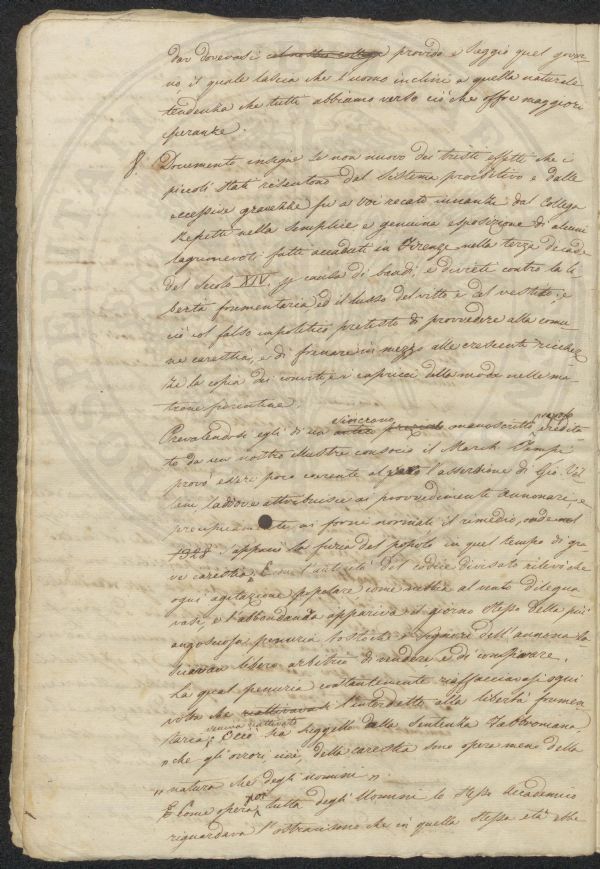 dar dovevasi al nostro collega provido e saggio quel gover-
no, il quale lascia che l'uomo inclini a quella naturale
tendenza che tutti abbiamo verso ciò che offre maggiori
speranze.
8. Documento insigne se non nuovo dei tristi effetti che i
piccoli stati risentono dal sistema proibitivo e dalle
eccessive gravezze fu a voi recato innanzi dal Collega
nella semplice e genuina esposizione di alcuni
lagrimevoli fatti accaduti in Firenze nella terza decade
del Secolo XIV, p causa di bandi, e divieti contro la li
bertà frumentaria ed il lusso del vitto e del vestito; e
ciò col falso impolitico pretesto di provvedere alla comu-
ne carestia, e di frenare in mezzo alle crescenti ricchez-
ze la copia dei conviti e i capricci della moda nelle ma-
trone fiorentine.
Prevalendosi egli di un antico sincrono prezioso manoscritto eredita-
to da un nostro illustre consocio il March. Tempi
provò essere poco coerente al vero l'asserzione di Gio. Vil
lani laddove attribuisce ai provvedimenti annonarj, e
precipuamente ai forni normali il rimedio, onde nel
1328. appaciò la furia del popolo in quel tempo di gra-
ve carestia. E con l'autorità del codice divisato rilevò che
ogni agitazione popolare come nebbia al vento dilegua
vasi, e l'abbondanza appariva il giorno stesso della più
angosciosa penuria tostochè i Signori dell'annona la-
sciavan libero arbitrio di vendere e di comprare.
La qual penuria costantemente riaffacciavasi ogni
volta che riattivavasi veniva riattivato l'interdetto alla libertà frumen
taria; Ecco sia suggello alla sentenza Fabbroniana,
" che gli orrori cioè, della carestia sono opera meno della
" natura che degli uomini ".
E come opera pur tutta degli Uomini lo stesso Accademico
riguardava l'ostracismo che in quella stessa età ebbe